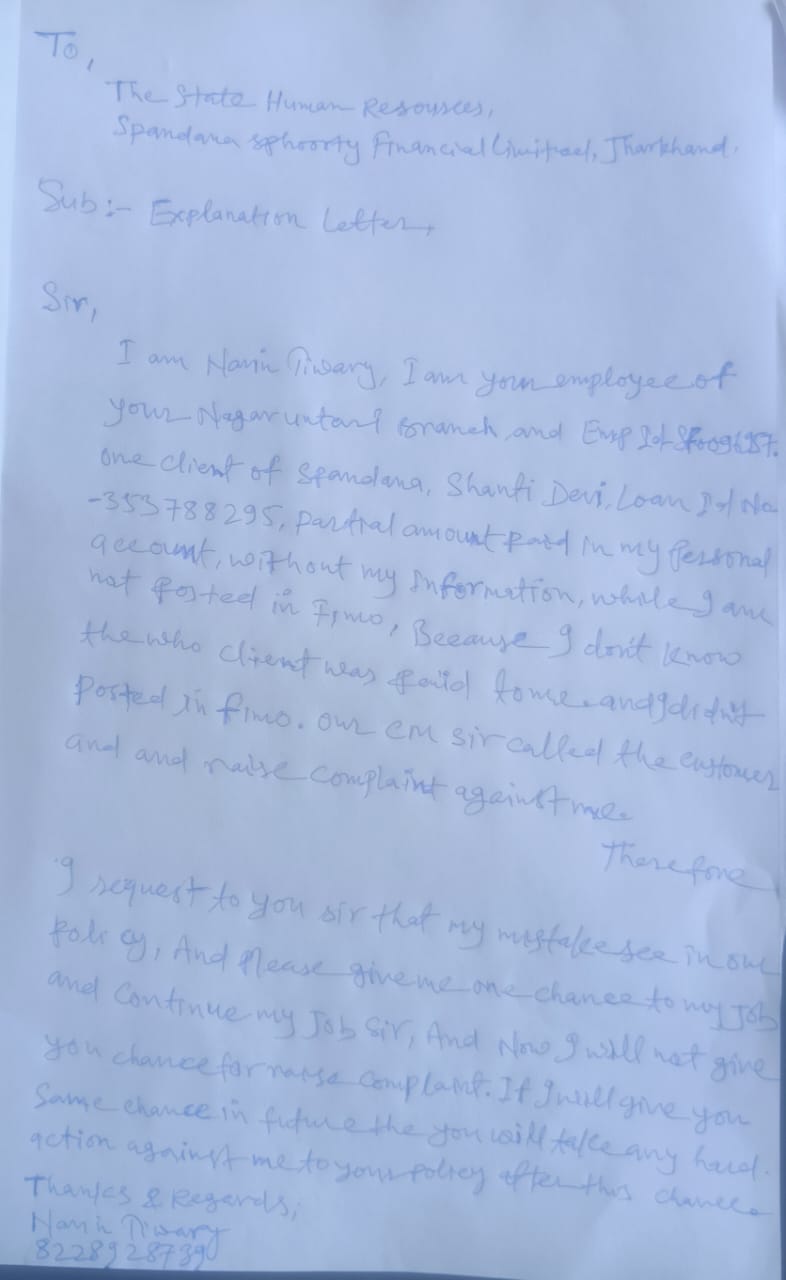 To,
The State Human Resources,
Spandana sphoorty financial limited, Jharkhand.
Sub:- Explanation Letter,
Sir,
I am Navin Tiwary, I am your employee of
your Nagaruntari Branch and Emp Id SF0096957.
one client of Spandana, Shanti Devi, Loan Id No
-353788295, partial amount paid in my personal
account, without my information, while I am
not posted in Fimo, Because I don't know
the who client was paid to me. and I didn't
posted in fimo. our CM sir called the customer
and and raise complaint against me.
Therefore
I request to you sir that my mistake see in our
policy, And please give me one chance to my Job
and Continue my Job Sir, And Now I will not give
you chance for raise complaint. If I will give you
Same chance in future the you will take any hard
action against me to your policy after this chance.
Thanks & Regards,
Navin Tiwary
8228928739